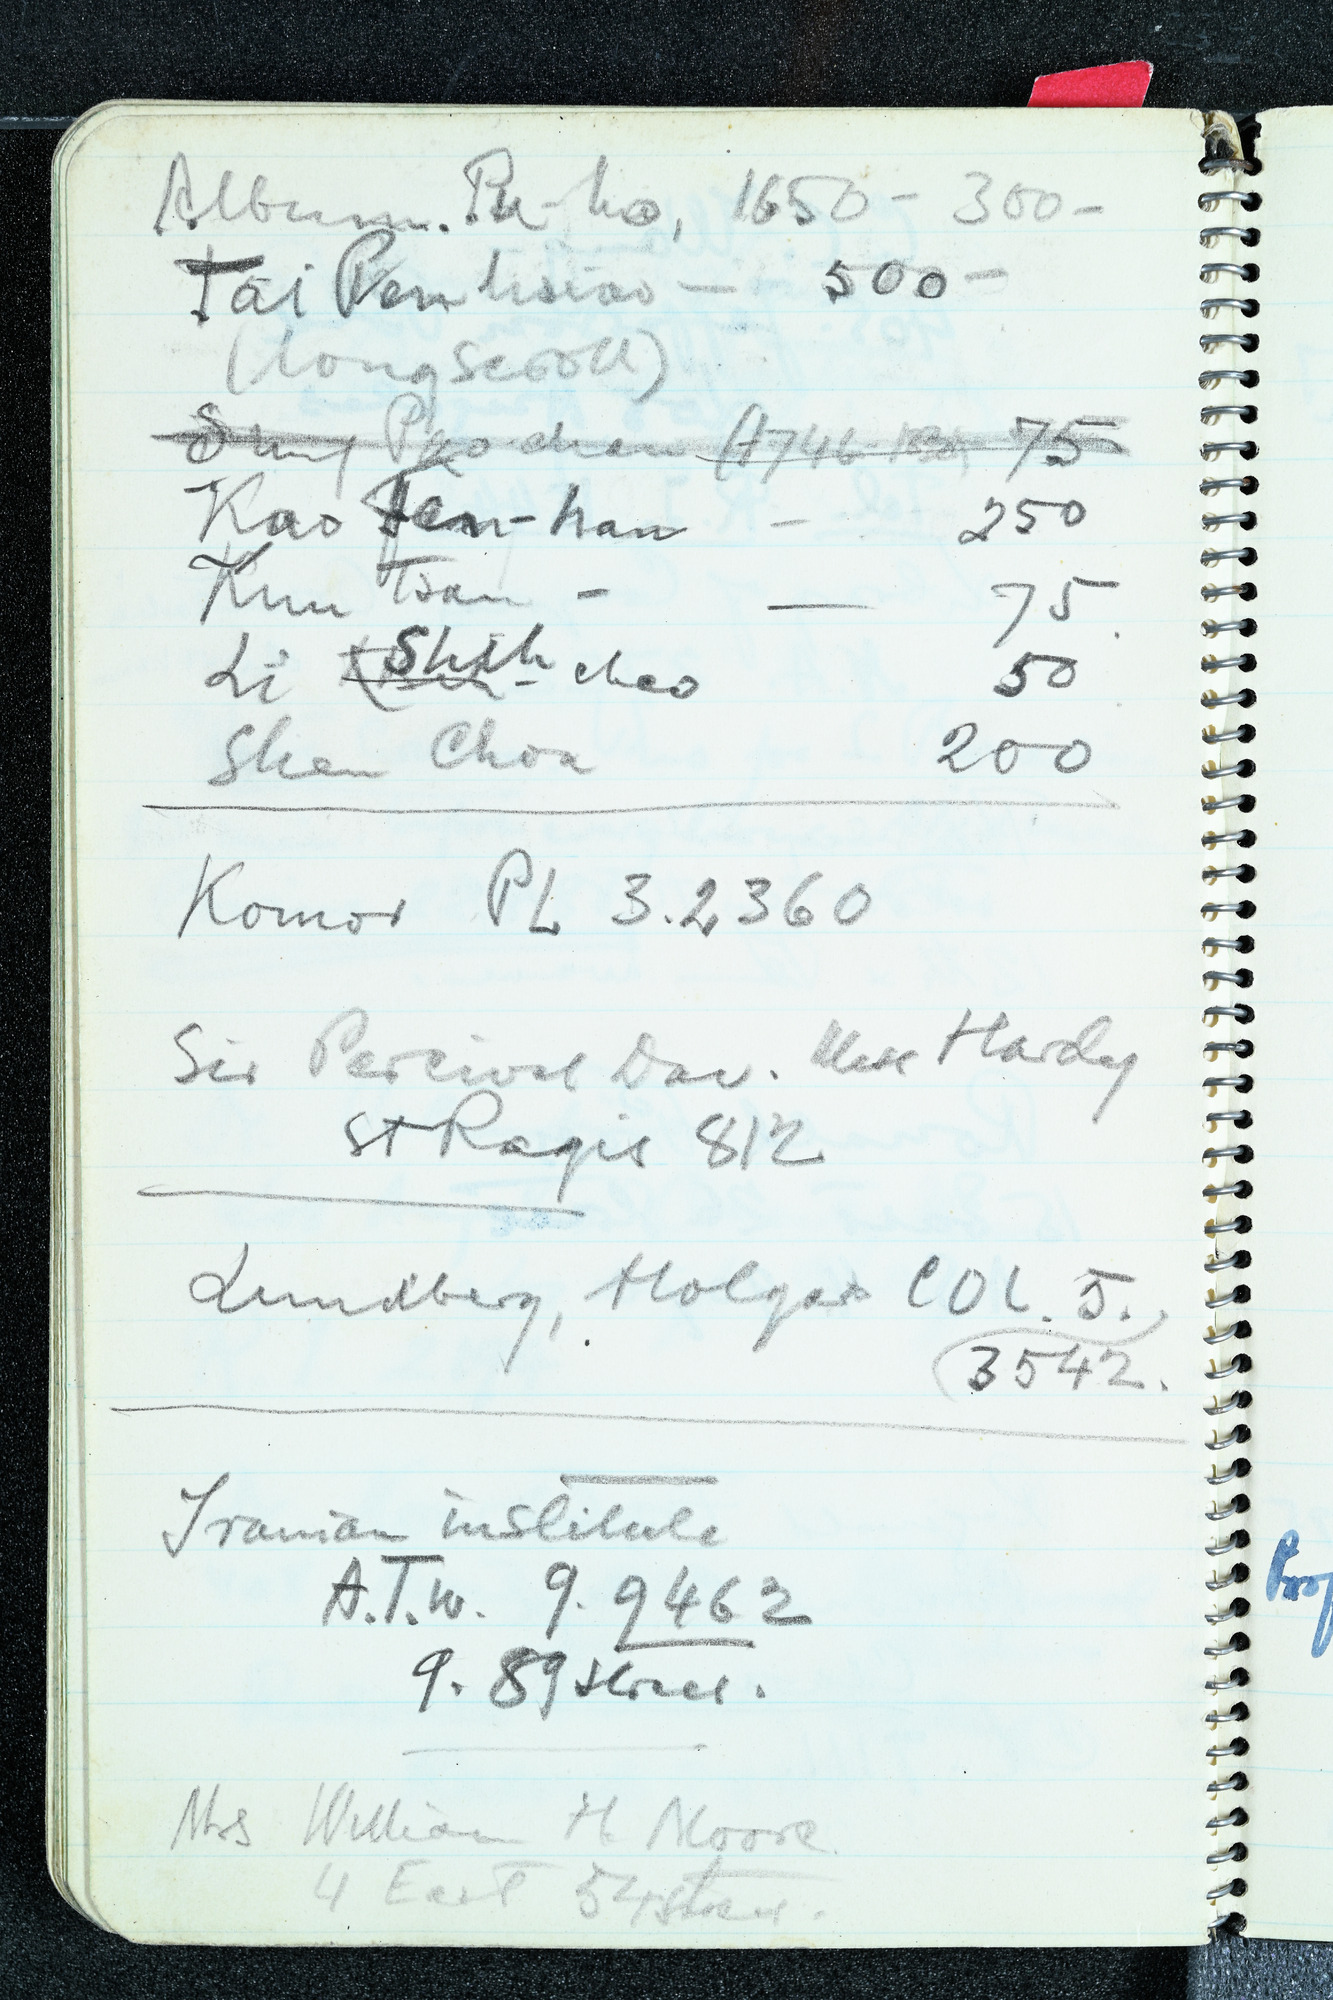 Album. Pu-ho, 1650 - 300 -
Tai Pen hsiao - 500 -
(long scroll)
Sung Pao chen (A746 75
Kao Jen-han - 250
Kun Tsan - — 75.
Li Shih - chao 50
Shen Chou 200
Komor PL 3.2360
Sir Percival Dav. Hardy
St Regis 812
Lundberg, Holger COL. 5.
3542.
Iranian institute
A.T.W. 9. 9462
9. 89 street.
Mrs William H Moore
4 East 54 street.